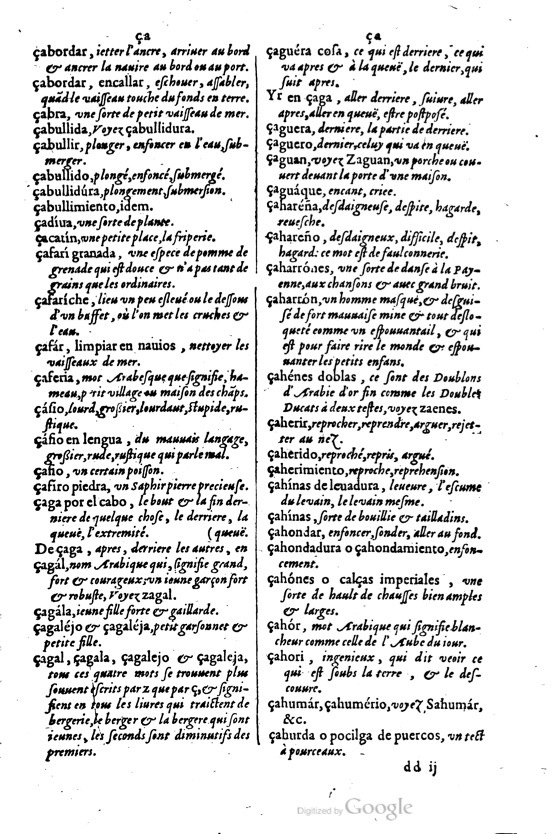 ça
çabordar, ietter l'ancre, arriuer au bord
& ancrer la nauire au bord ou au port.
çabordar, encallar, eschouer, assabler,
quãd le vaisseau touche du fonds en terre.
çabra, vne sorte de petit vaisseau de mer.
çabullida, Voyez çabullidura.
çabullir, plonger, enfoncer en l'eau, sub-
merger.
çabullido, plongé, enfoncé, submergé.
çabullidúra, plongement, submersion.
çabullimiento, idem.
çadiua, vne sorte de plante.
çacatín, vne petite place, la friperie.
çafarí granada, vne espece de pomme de
grenade qui est douce & n'a pas tant de
grains que les ordinaires.
çafaríche, lieu vn peu esleué ou le dessous
d'vn buffet, où l'on met les cruches &
l'eau.
çafár, limpiar en nauios, nettoyer les
vaisseaux de mer.
çaferia, mot Arabesque que signifie, ha-
meau, petit village ou maison des chãps.
çáfio, lourd, grossier, lourdaut, stupide, ru-
stique.
çáfio en lengua, du mauuais langage,
grossier, rude, rustique qui parle mal.
çafio, vn certain poisson.
çafiro piedra, vn Saphir pierre precieuse.
çaga por el cabo, le bout & la fin der-
niere de quelque chose, le derriere, la
queuë, l'extremité. (queuë.
De çaga, apres, derriere les autres, en
çagál, nom Arabique qui, signifie grand,
fort & courageux: vn ieune garçon fort
& robuste, Voyez zagal.
çagála, ieune fille forte & gaillarde.
çagaléjo & çagaléja, petit garsonnet &
petite fille.
çagal, çagala, çagalejo & çagaleja,
tous ces quatre mots se trouuent plus
souuent escrits par z que par ç, & signi-
fient en tous les liures qui traictent de
bergerie, le berger & la bergere qui sont
ieunes, les seconds sont diminutifs des
premiers.
ça
çaguéra cosa, ce qui est derriere, ce qui
va apres & à la queuë, le dernier, qui
suit apres.
Yr en çaga, aller derriere, suiure, aller
apres, aller en queuë, estre postposé.
çaguera, derniere, la partie de derriere.
çaguero, dernier, celuy qui va en queuë.
çaguan, voyez Zaguan, vn porche ou cou-
uert deuant la porte d'vne maison.
çaguáque, encant, criee.
çahareña, desdaigneuse, despite, hagarde,
reuesche.
çahareño, desdaigneux, difficile, despit,
hagard: ce mot est de faulconnerie.
çaharrónes, vne sorte de danse à la Pay-
enne, aux chansons & auec grand bruit.
çaharrón, vn homme masqué, & desgui-
sé de fort mauuaise mine & tout deslo-
queté comme vn espouuantail, & qui
est pour faire rire le monde & espou-
uanter les petits enfans.
çahénes doblas, ce sont des Doublons
d'Arabie d'or fin comme les Doubles
Ducats à deux testes, voyez zaenes.
çaherir, reprocher, reprendre, arguer, rejet-
ter au nez.
çaherido, reproché, repris, argué.
çaherimiento, reproche, reprehension.
çahínas de leuadura, leueure, l'escume
du leuain, le leuain mesme.
çahínas, sorte de bouillie & tailladins.
çahondar, enfoncer, sonder, aller au fond.
çahondadura o çahondamiento, enfon-
cement.
çahónes o calças imperiales, vne
sorte de hault de chausses bien amples
& larges.
çahór, mot Arabique qui signifie blan-
cheur comme celle de l'Aube du iour.
çahori, ingenieux, qui dit veoir ce
qui est soubs la terre, & le des-
couure.
çahumár, çahumério, voyez Sahumár,
&c.
çahurda o pocilga de puercos, vn tect
à pourceaux.
dd ij
Digitized by Google